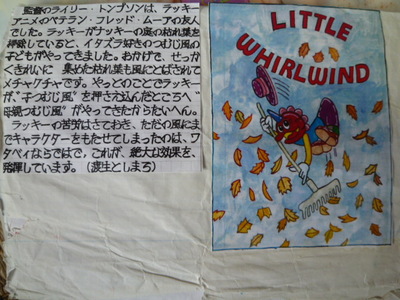 監督のライリー・トンプソンは、ラッキー
アニメのベテラン・フレッド・ムーアの友人
でした。ラッキーがナッキーの庭の枯れ葉を
掃除していると、イタズラ好きのつむじ風の
子どもがやってきました。おかげで、せっか
くきれいに集めた枯れ葉も風にとばされて
メチャクチャです。やっとのことでラッキー
が、"子つむじ風"を押さえ込んだところへ
"母親つむじ風"がやってきたからたいへん。
ラッキーの苦労はさておき、ただの風にま
でキャラクターをもたせてしまったのは、ワ
タベイならではで、これが、絶大な効果を、
発揮しています。(渡生としまろ)
LITTLE
WHIRLWIND